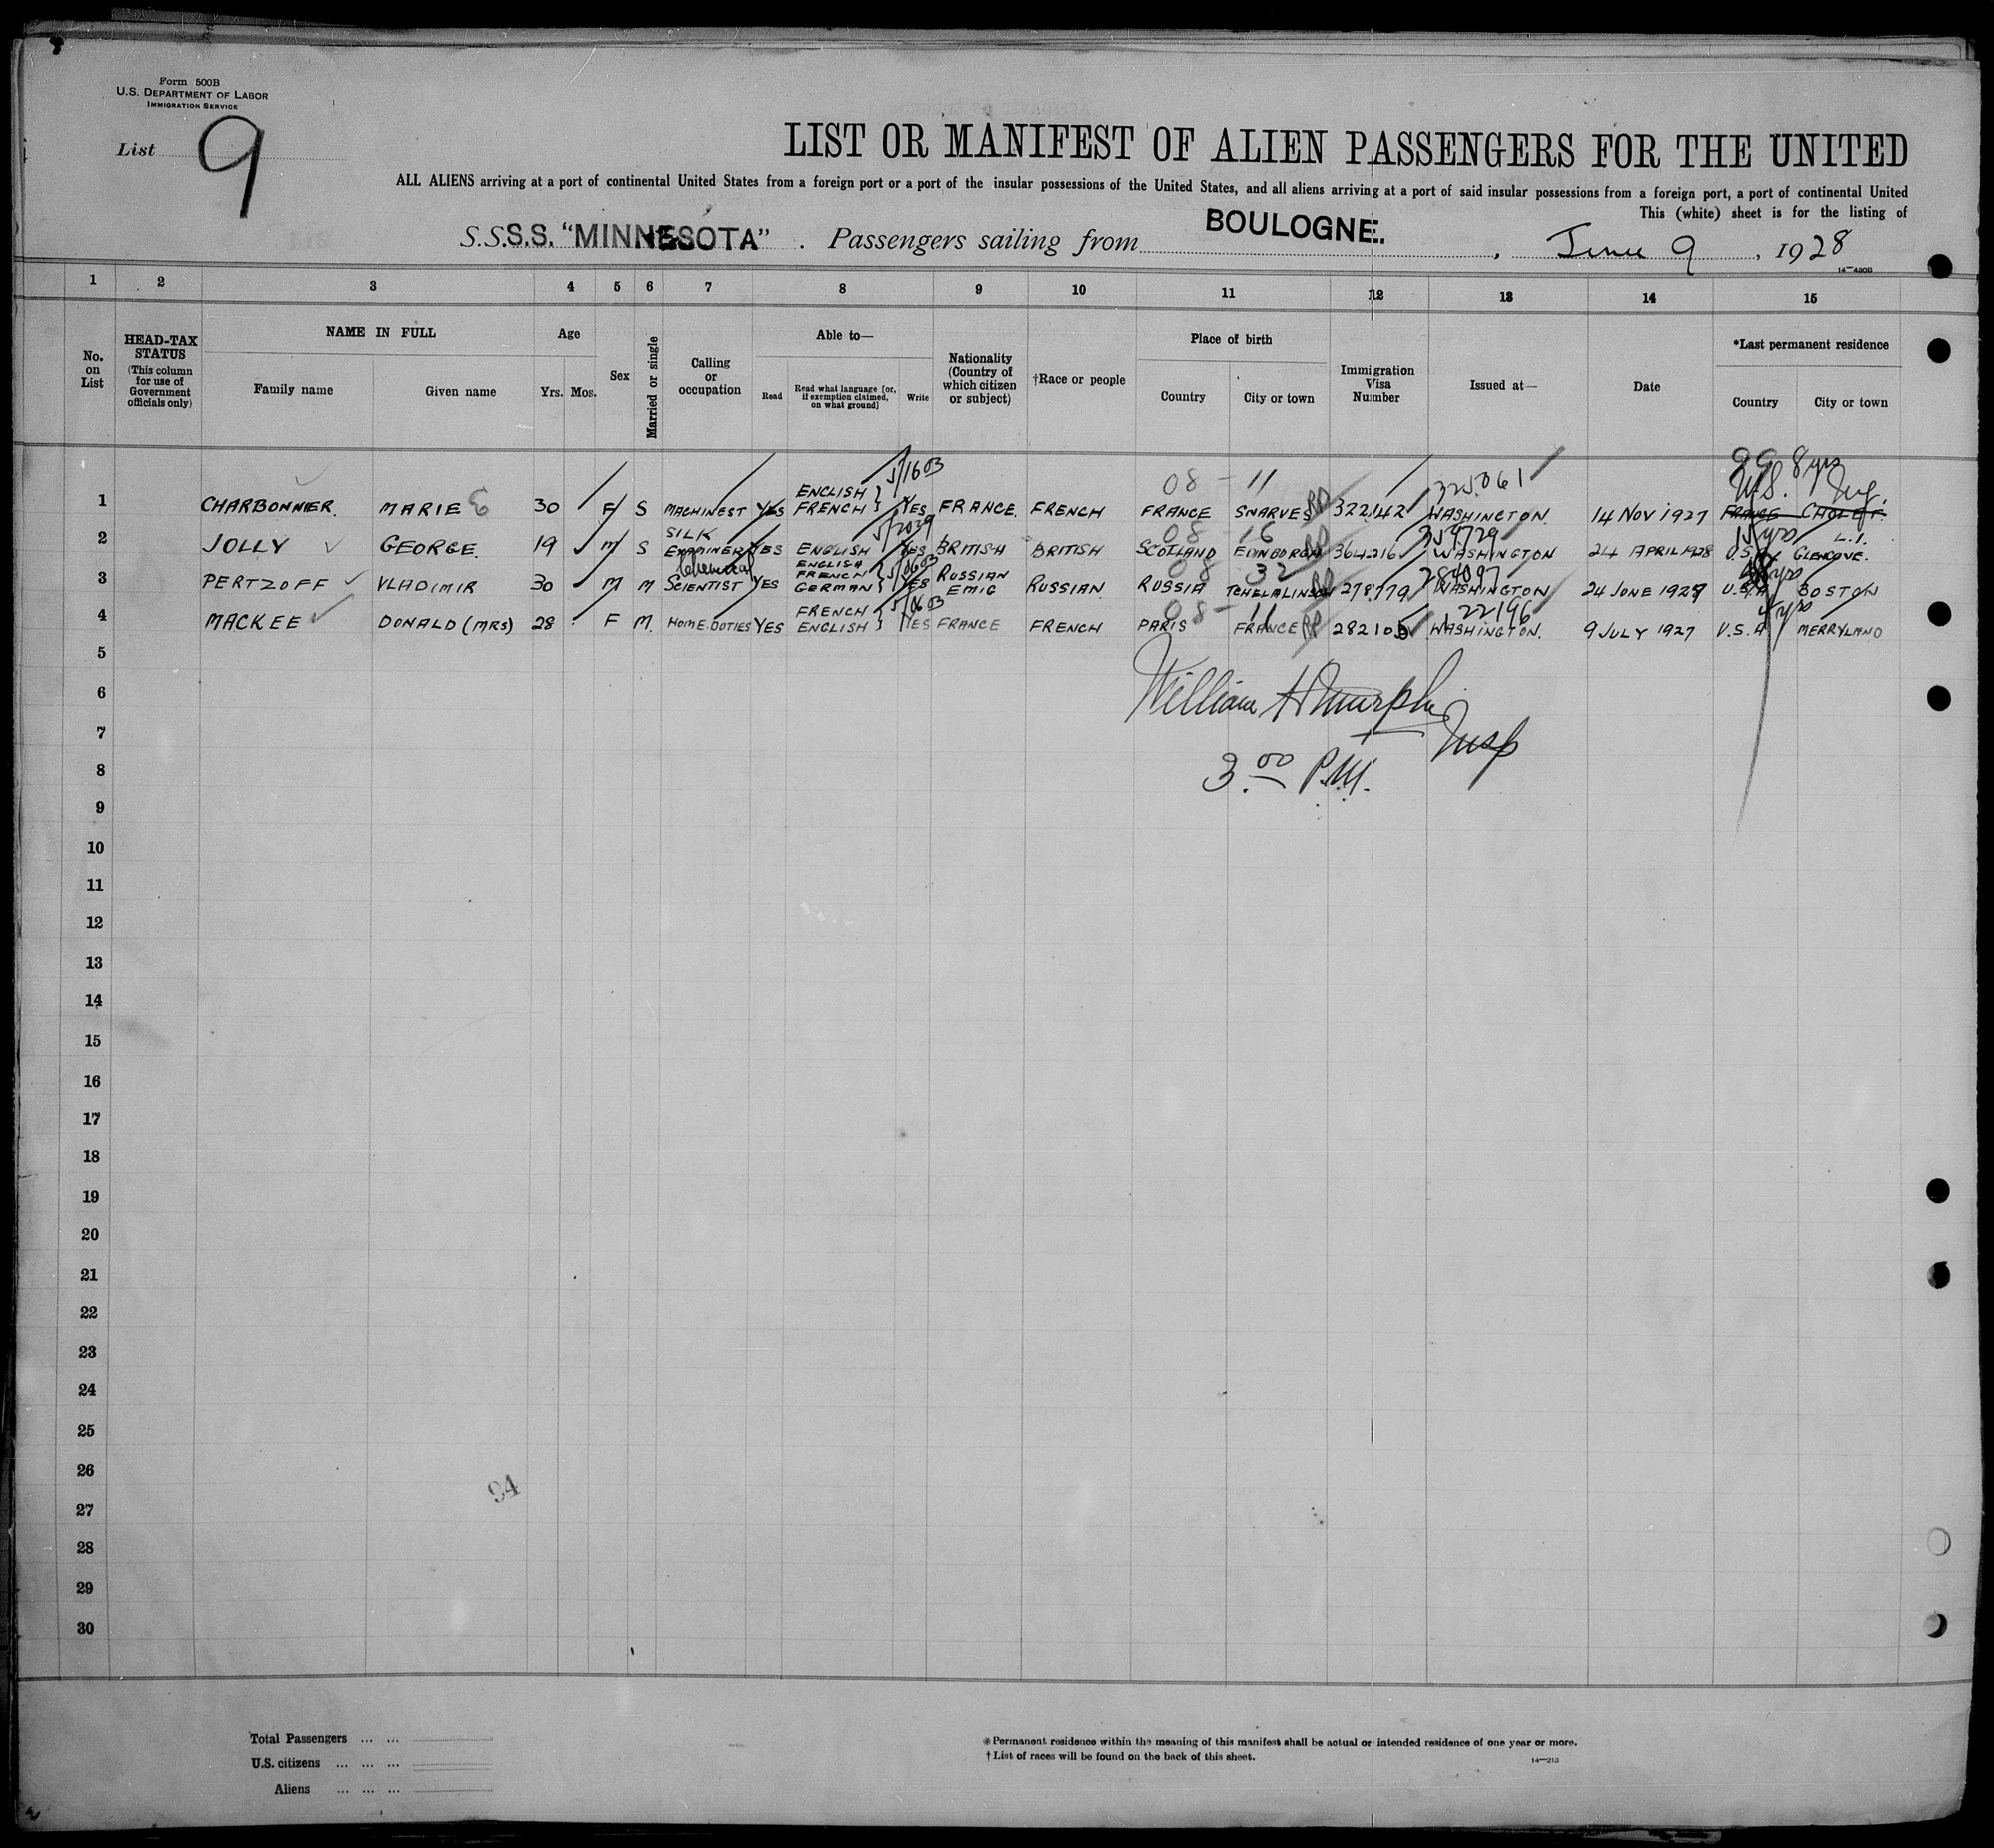 Form 500B
U.S. DEPARTMENT OF LABOR
IMMIGRATION SERVICE
List 9
LIST OR MANIFEST OF ALIEN PASSENGERS FOR THE UNITED
ALL ALIENS arriving at a port of continental United States from a foreign port or a port of the insular possessions of the United States, and all aliens arriving at a port of said insular possessions from a foreign port, a port of continental United
This (white) sheet is for the listing of
S.S. S.S. "MINNESOTA" . Passengers sailing from BOULOGNE. , June 9 , 1928
14—430B
1 2 3 4 5 6 7 8 9 10 11 12 13 14 15
No. on List
HEAD-TAX STATUS (This column for use of Government officials only)
NAME IN FULL
Family name
Given name
Age
Yrs. Mos.
Sex
Married or single
Calling or occupation
Able to—
Read
Read what language [or, if exemption claimed, on what ground]
Write
Nationality (Country of which citizen or subject)
†Race or people
Place of birth
Country
City or town
Immigration Visa Number
Issued at—
Date
*Last permanent residence
Country
City or town
5/1603
08 - 11
325061
8 yrs
U.S.
1 CHARBONNIER. MARIE E 30 F S MACHINEST YES ENGLISH FRENCH } YES FRANCE. FRENCH FRANCE SNARVES 322142 WASHINGTON. 14 NOV 1927 FRANCE
5/2039
08 - 16
359729
15 yrs
2 JOLLY GEORGE. 19 M S SILK EXAMINER YES ENGLISH YES BRITISH BRITISH SCOTLAND EDINBORGH 364216 WASHINGTON 24 APRIL 1928 U.S.A. GLENCOVE. L.I.
5/0603
08 32
284097
3 PERTZOFF VLADIMIR 30 M M Chemical SCIENTIST YES ENGLISH FRENCH GERMAN } YES RUSSIAN EMIG RUSSIAN RUSSIA 278779 WASHINGTON 24 JUNE 1927 U.S.A BOSTON
5/0603
08 - 11
122196
4 yrs
4 MACKEE DONALD (MRS) 28 F M. HOME-DUTIES YES FRENCH ENGLISH } YES FRANCE FRENCH PARIS FRANCE 282105 WASHINGTON. 9 JULY 1927 U.S.A MERRYLAND
5
6
William H Murphy
7
Insp
8
3.00 P.M.
9
10
11
12
13
14
15
16
17
18
19
20
21
22
23
24
25
26
94
27
28
29
30
Total Passengers ... ...
U.S. citizens ... ... ...
Aliens ... ... ...
*Permanent residence within the meaning of this manifest shall be actual or intended residence of one year or more.
†List of races will be found on the back of this sheet.
14—213